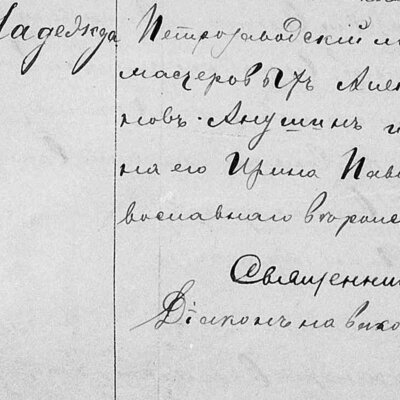 Надежда
Петрозаводскій м
мастеровыхъ Але
новъ. Анушинъ и
на его Ирина Пав
вославнаго второ
Священни
Діаконъ на вако